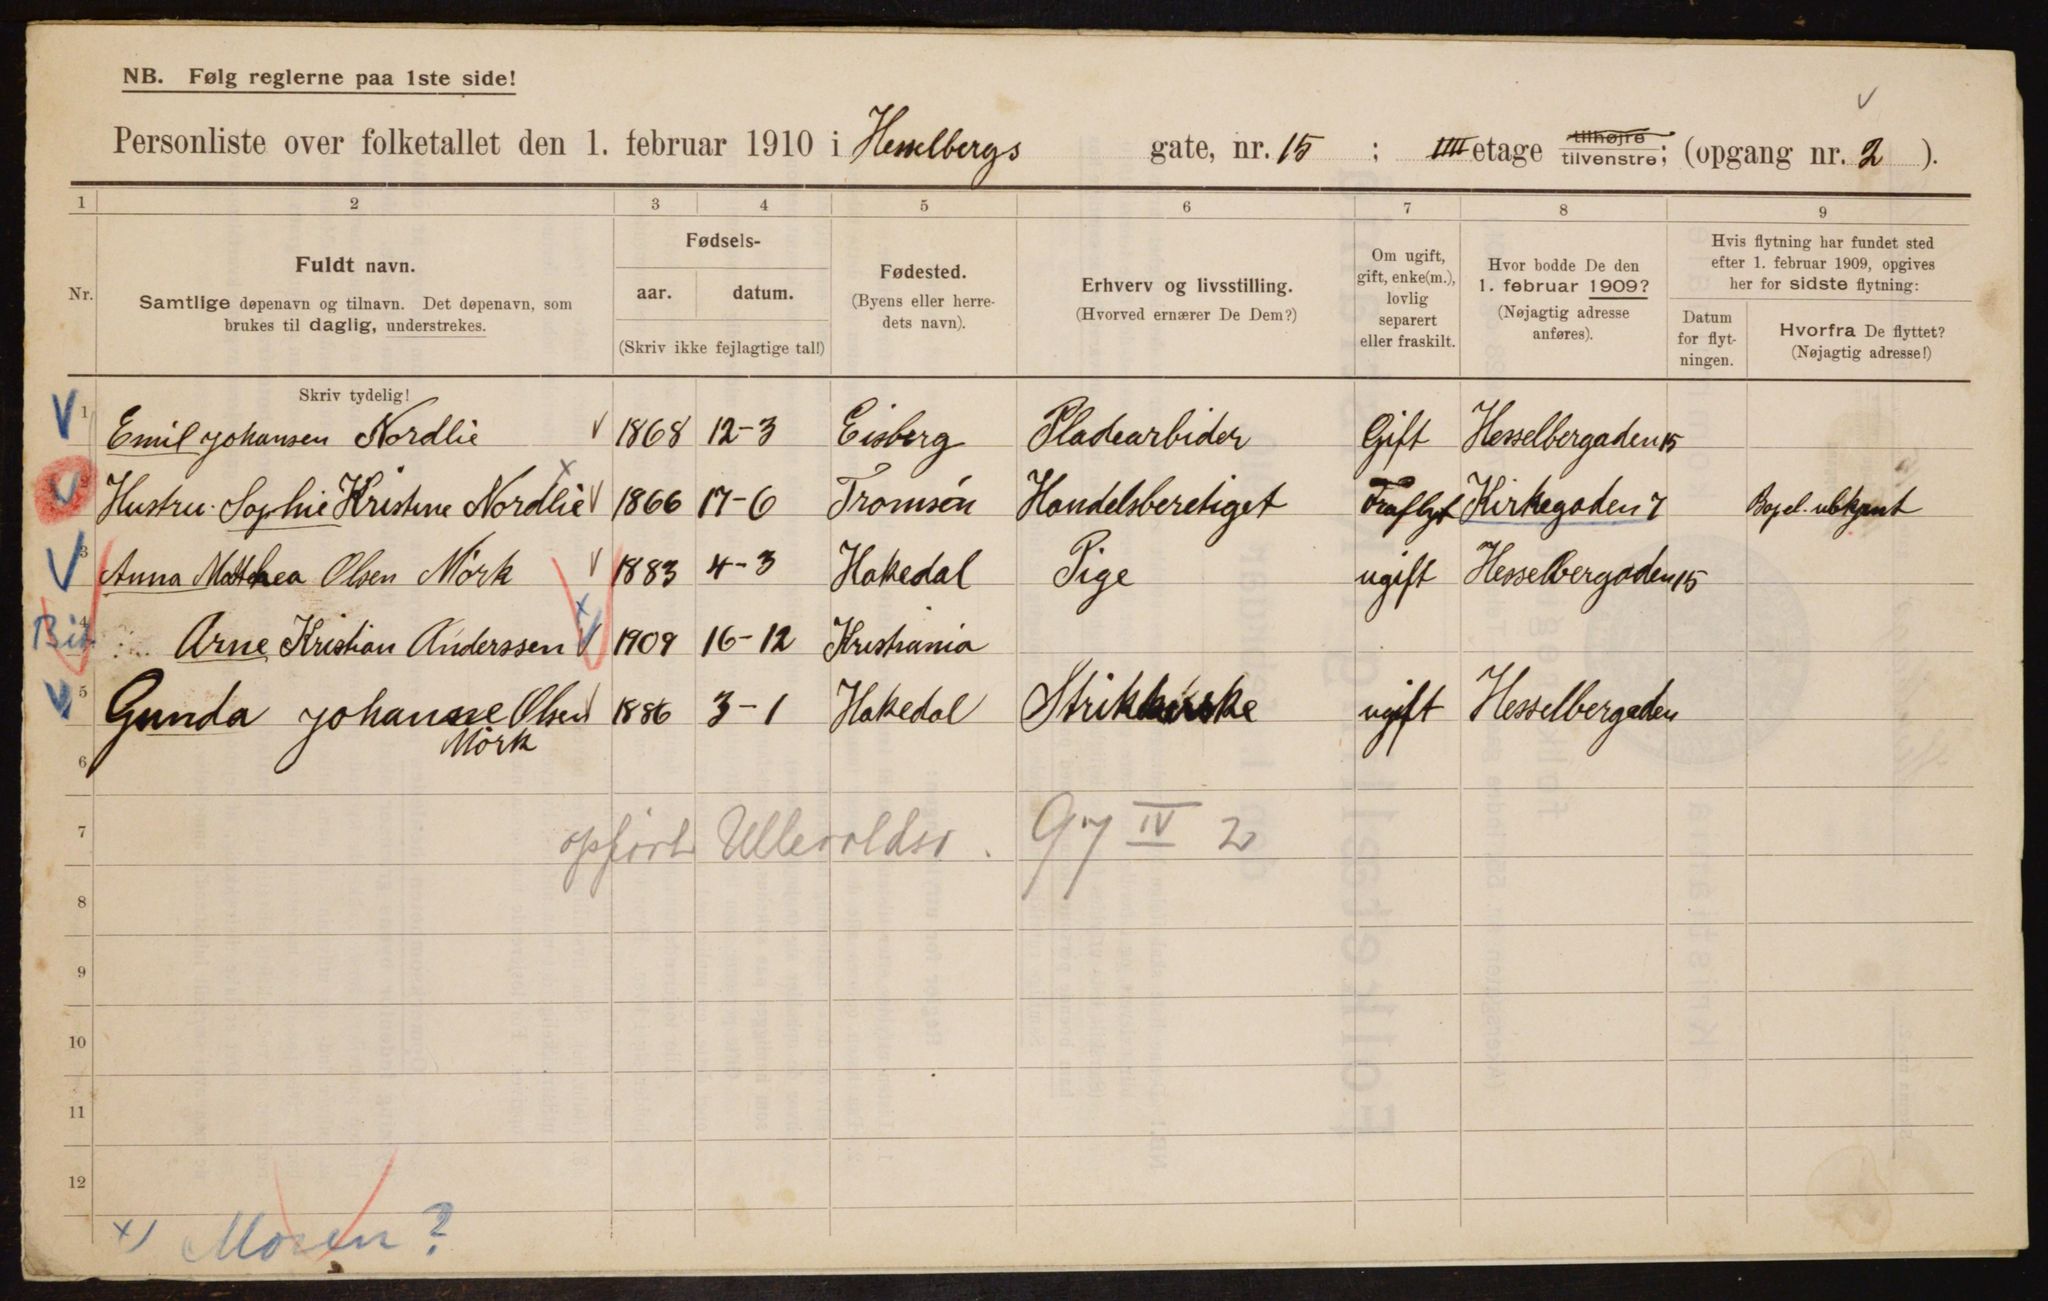 NB. Følg reglerne paa 1ste side!
Personliste over folketallet den 1. februar 1910 i Hesselbergs gate, nr. 15 ; IIII etage tilhøjre tilvenstre; (opgang nr. 2 ).
1 2 3 4 5 6 7 8 9
Nr.
Fuldt navn.
Samtlige døpenavn og tilnavn. Det døpenavn, som
brukes til daglig, understrekes.
Fødsels-
aar. datum.
(Skriv ikke fejlagtige tal!)
Fødested.
(Byens eller herre-
dets navn).
Erhverv og livsstilling.
(Hvorved ernærer De Dem?)
Om ugift,
gift, enke(m.),
lovlig
separert
eller fraskilt.
Hvor bodde De den
1. februar 1909?
(Nøjagtig adresse
anføres).
Hvis flytning har fundet sted
efter 1. februar 1909, opgives
her for sidste flytning:
Datum
for flyt-
ningen.
Hvorfra De flyttet?
(Nøjagtig adresse!)
Skriv tydelig!
V 1 Emil Johansen Nordlie V 1868 12-3 Eisberg Pladearbider Gift Hesselbergaden 15
V 2 Hustru. Sophie Kristine Nordlie x V 1866 17-6 Tromsön Handelsberetiget Fraflyt Kirkegaden 7
V 3 Anna Mathea Olsen Mörk V 1883 4-3 Hakedal Pige ugift Hesselbergaden 15
4 Arne Kristian Anderssen x V 1909 16-12 Kristiania
V 5 Gunda Johanne Olsen V 1886 3-1 Hakedal Strikkerske ugift Hesselbergaden
Mörk
6
7 opført Ullevoldsv. 97 IV 2
8
9
10
11
12
x) Moren?